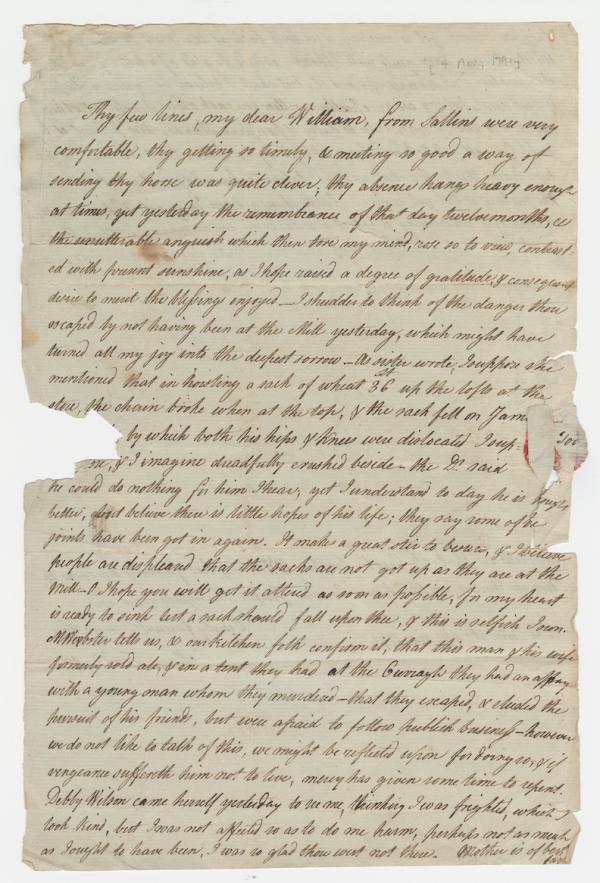 4 Nov. 1791
Thy few lines, my dear William, from Sallins were very
comfortable, thy getting so timely, & meeting so good a way of
sending thy horse was quite clever; thy absence hangs heavy enough
at times, yet yesterday the remembrance of that day twelvemonths, &
the unutterable anguish which then tore my mind, rose so to view, contrast-
ed with present sunshine, as I hope raised a degree of gratitude, & consequent
desire to merit the blessings enjoyed — I shudder to think of the danger thou
escaped by not having been at the Mill yesterday, which might have
turned all my joy into the deepest sorrow — As sister wrote, I suppose she
mentioned that in hoisting a sack of wheat 36 up the lofts at the
store, the chain broke when at the top, & the sack fell on Jam
by which both his hips & knees were dislocated I sup-
 & I imagine dreadfully crushed beside — the Dr. said
he could do nothing for him I hear, yet I understand to day he is
better, but believe there is little hopes of his life; they say some of the
joints have been got in again. It makes a great stir to be sure, & I believe
people are displeased that the sacks are not got up as they are at the
Mill — O I hope you will get it altered as soon as possible, for my heart
is ready to sink lest a sack should fall upon thee, & this is selfish I own.
M Webster tells us, & our kitchen folk confirm it, that this man & his wife
formerly sold ale, & in a tent they had at the Curragh they had an affray
with a young man whom they murdered — that they escaped, & eluded the
pursuit of his friends, but were afraid to follow publick business — however
we do not like to talk of this, we might be reflected upon for doing so, & if
vengeance suffereth him not to live, mercy has given some time to repent.
Debby Wilson came herself yesterday to see me, thinking I was frighted, which
look kind, but I was not affected so as to do me harm, perhaps not as much
as I ought to have been, I was so glad thou wert not there. Mother is of